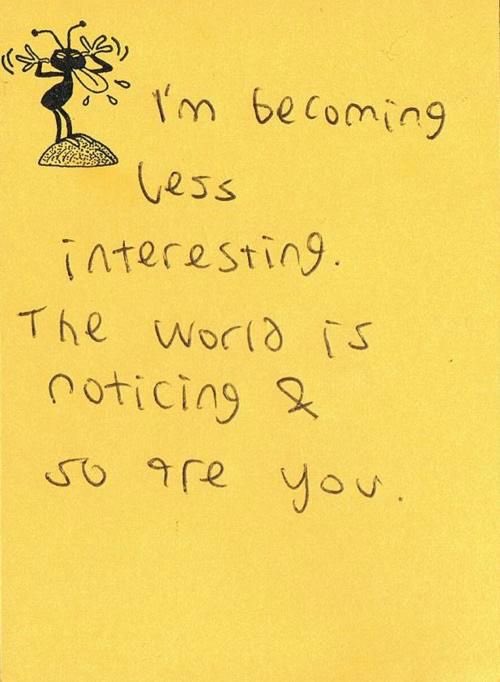 I'm becoming
less
interesting.
The world is
noticing &
so are you.